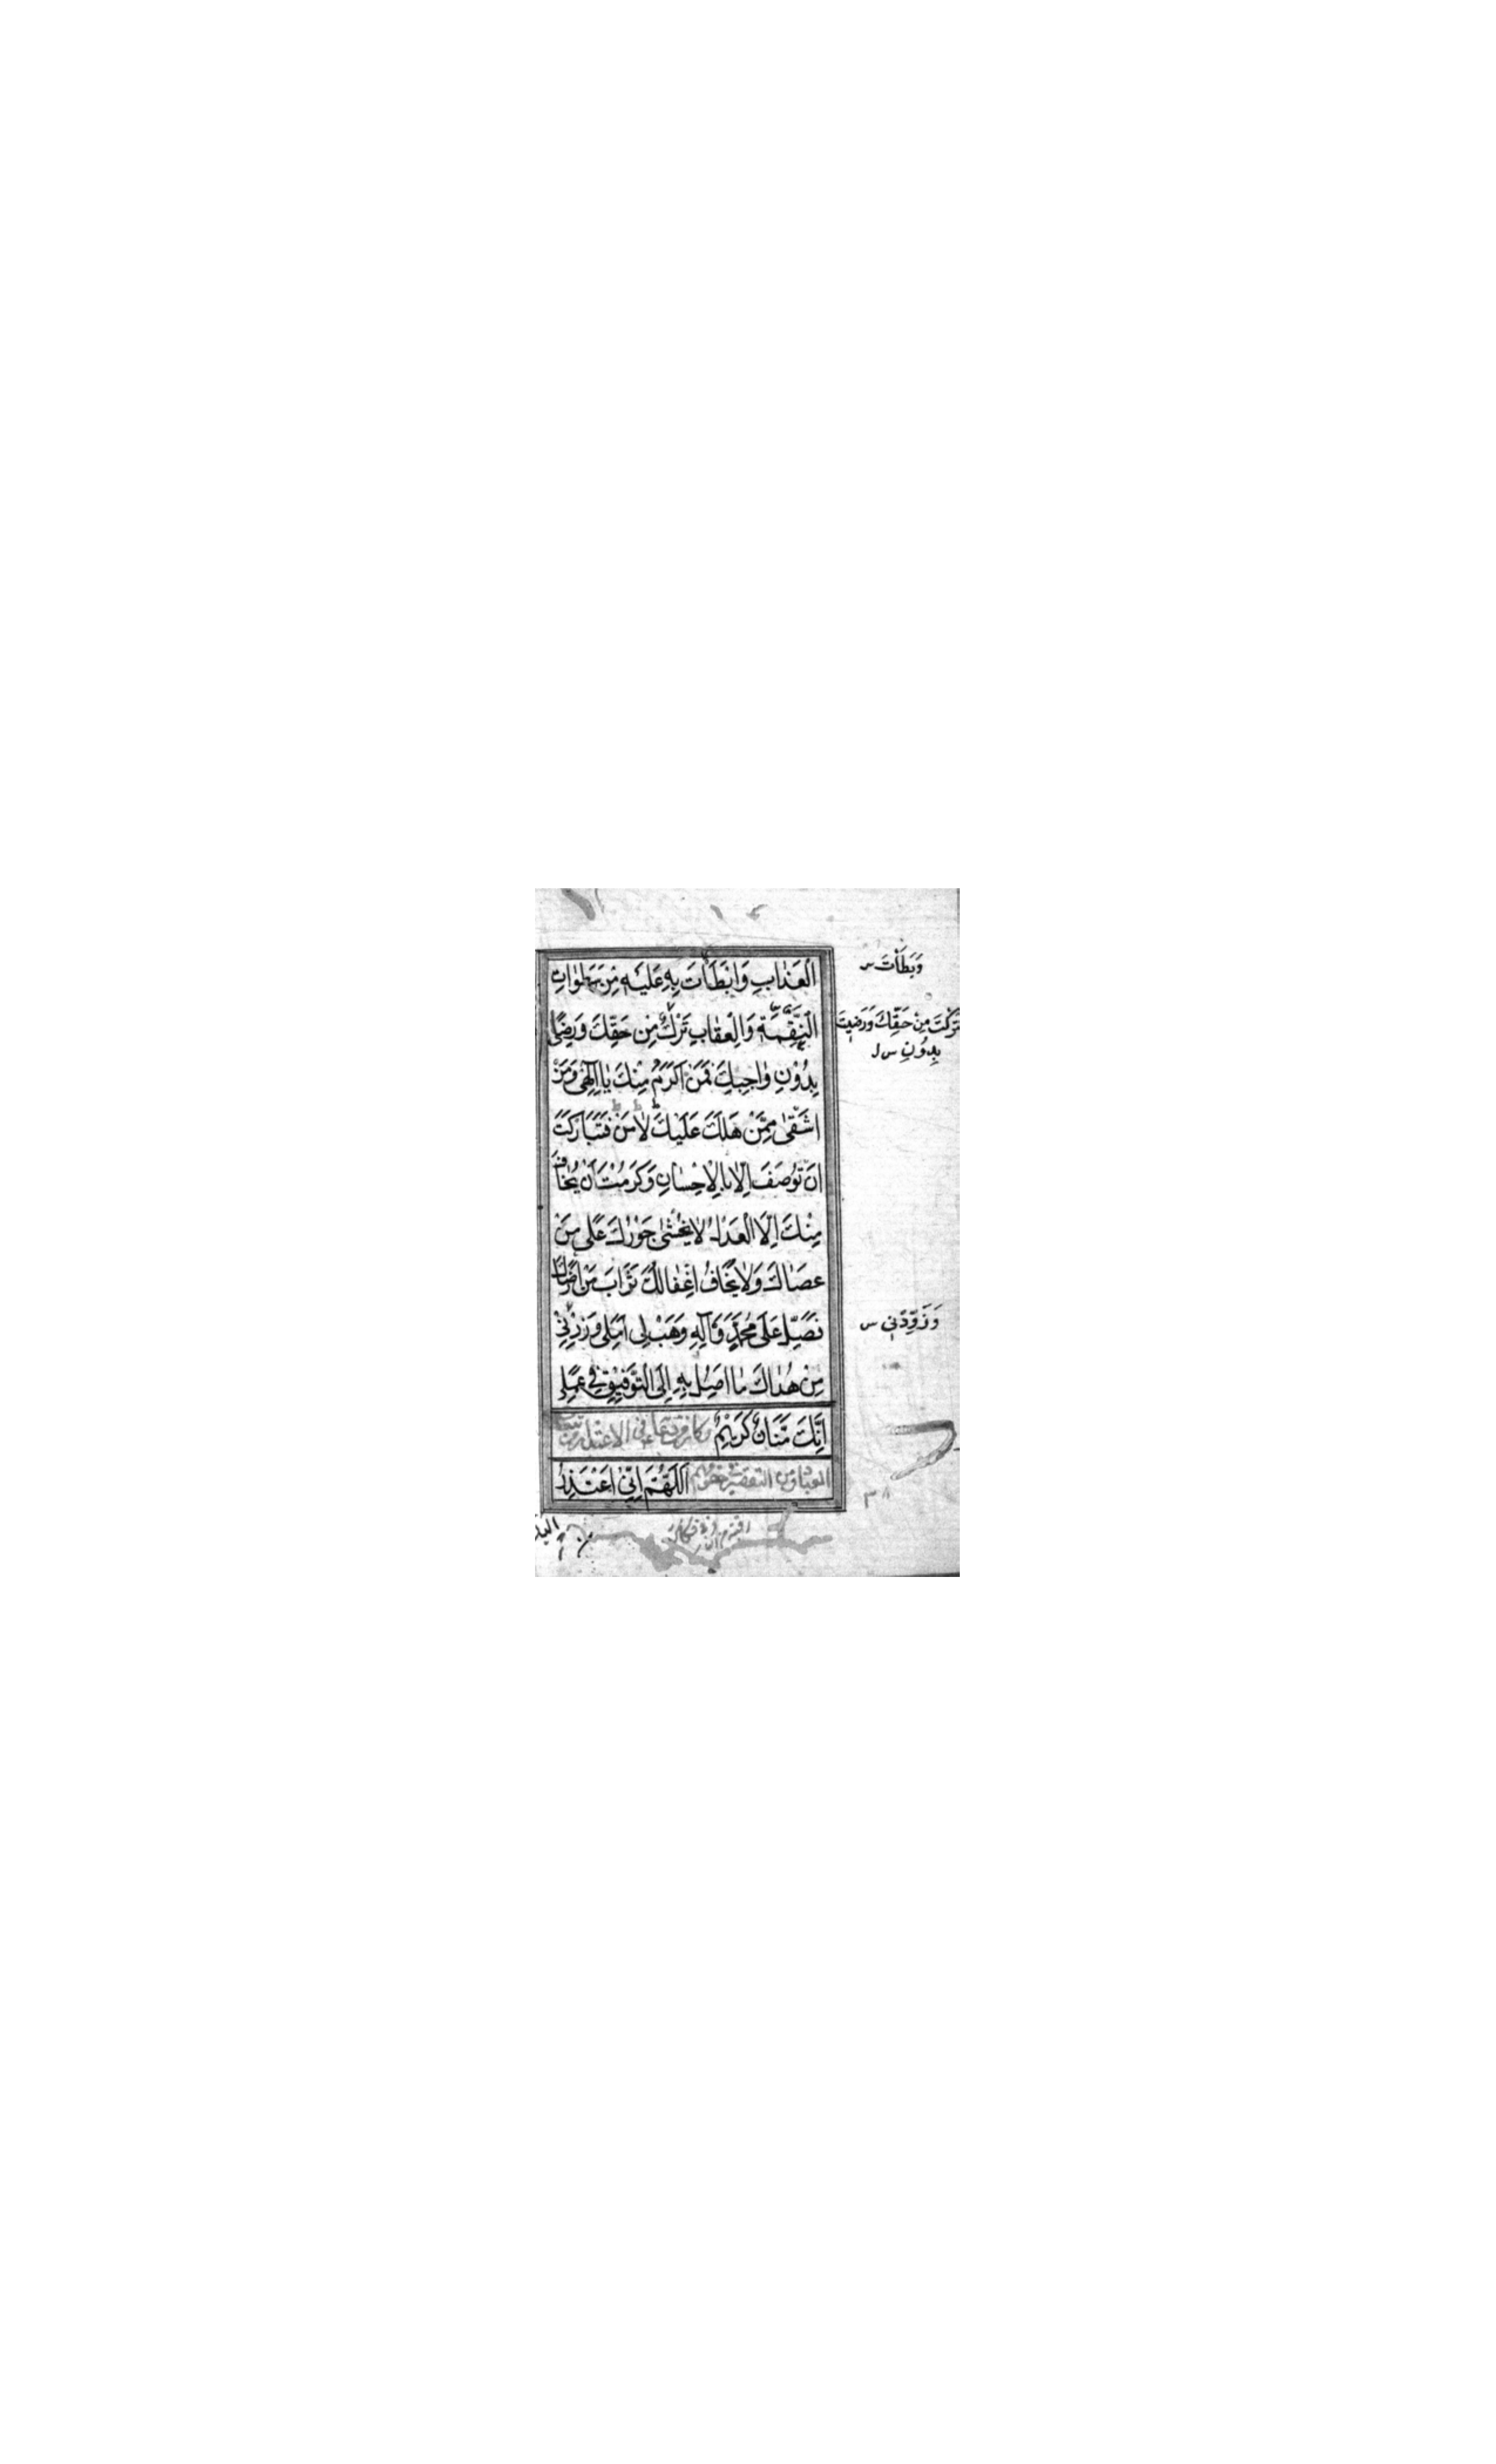 الْعَذَابِ وَابْطَأْتَ بِهِ عَلَيْهِ مِنْ سَطَوَاتِ
النَّقِمَةِ وَالْعِقَابِ تَرْكٌ مِنْ حَقِّكَ وَرِضًى
بِدُوْنِ وَاجِبِكَ فَمَنْ اَكْرَمُ مِنْكَ يَا اِلٰهِى وَمَنْ
اَشْقٰى مِمَّنْ هَلَكَ عَلَيْكَ لَا مَنْ فَتَبَارَكْتَ
اَنْ تُوصَفَ اِلَّا بِالْاِحْسَانِ وَكَرُمْتَ اَنْ يُخَافَ
مِنْكَ اِلَّا الْعَدْلُ لَا يُخْشٰى جَوْرُكَ عَلٰى مَنْ
عَصَاكَ وَلَا يُخَافُ اِغْفَالُكَ ثَوَابَ مَنْ اَرْضَاكَ
فَصَلِّ عَلٰى مُحَمَّدٍ وَآلِهِ وَهَبْ لِى اَمَلِى وَزِدْنِى
مِنْ هُدَاكَ مَا اَصِلُ بِهِ اِلَى التَّوْفِيْقِ فِى عَمَلِى
اِنَّكَ مَنَّانٌ كَرِيْمٌ وكان من دعائه فى الاعتذار من تبعات
العباد ومن التقصير فى حقوقهم اَللّٰهُمَّ اِنِّى اَعْتَذِرُ
وَبَطَأْتَ س
تَرَكْتَ مِنْ حَقِّكَ وَرَضِيتَ
بِدُونِ س ل
وَزَوِّدْنِى س
٣٨
اليك